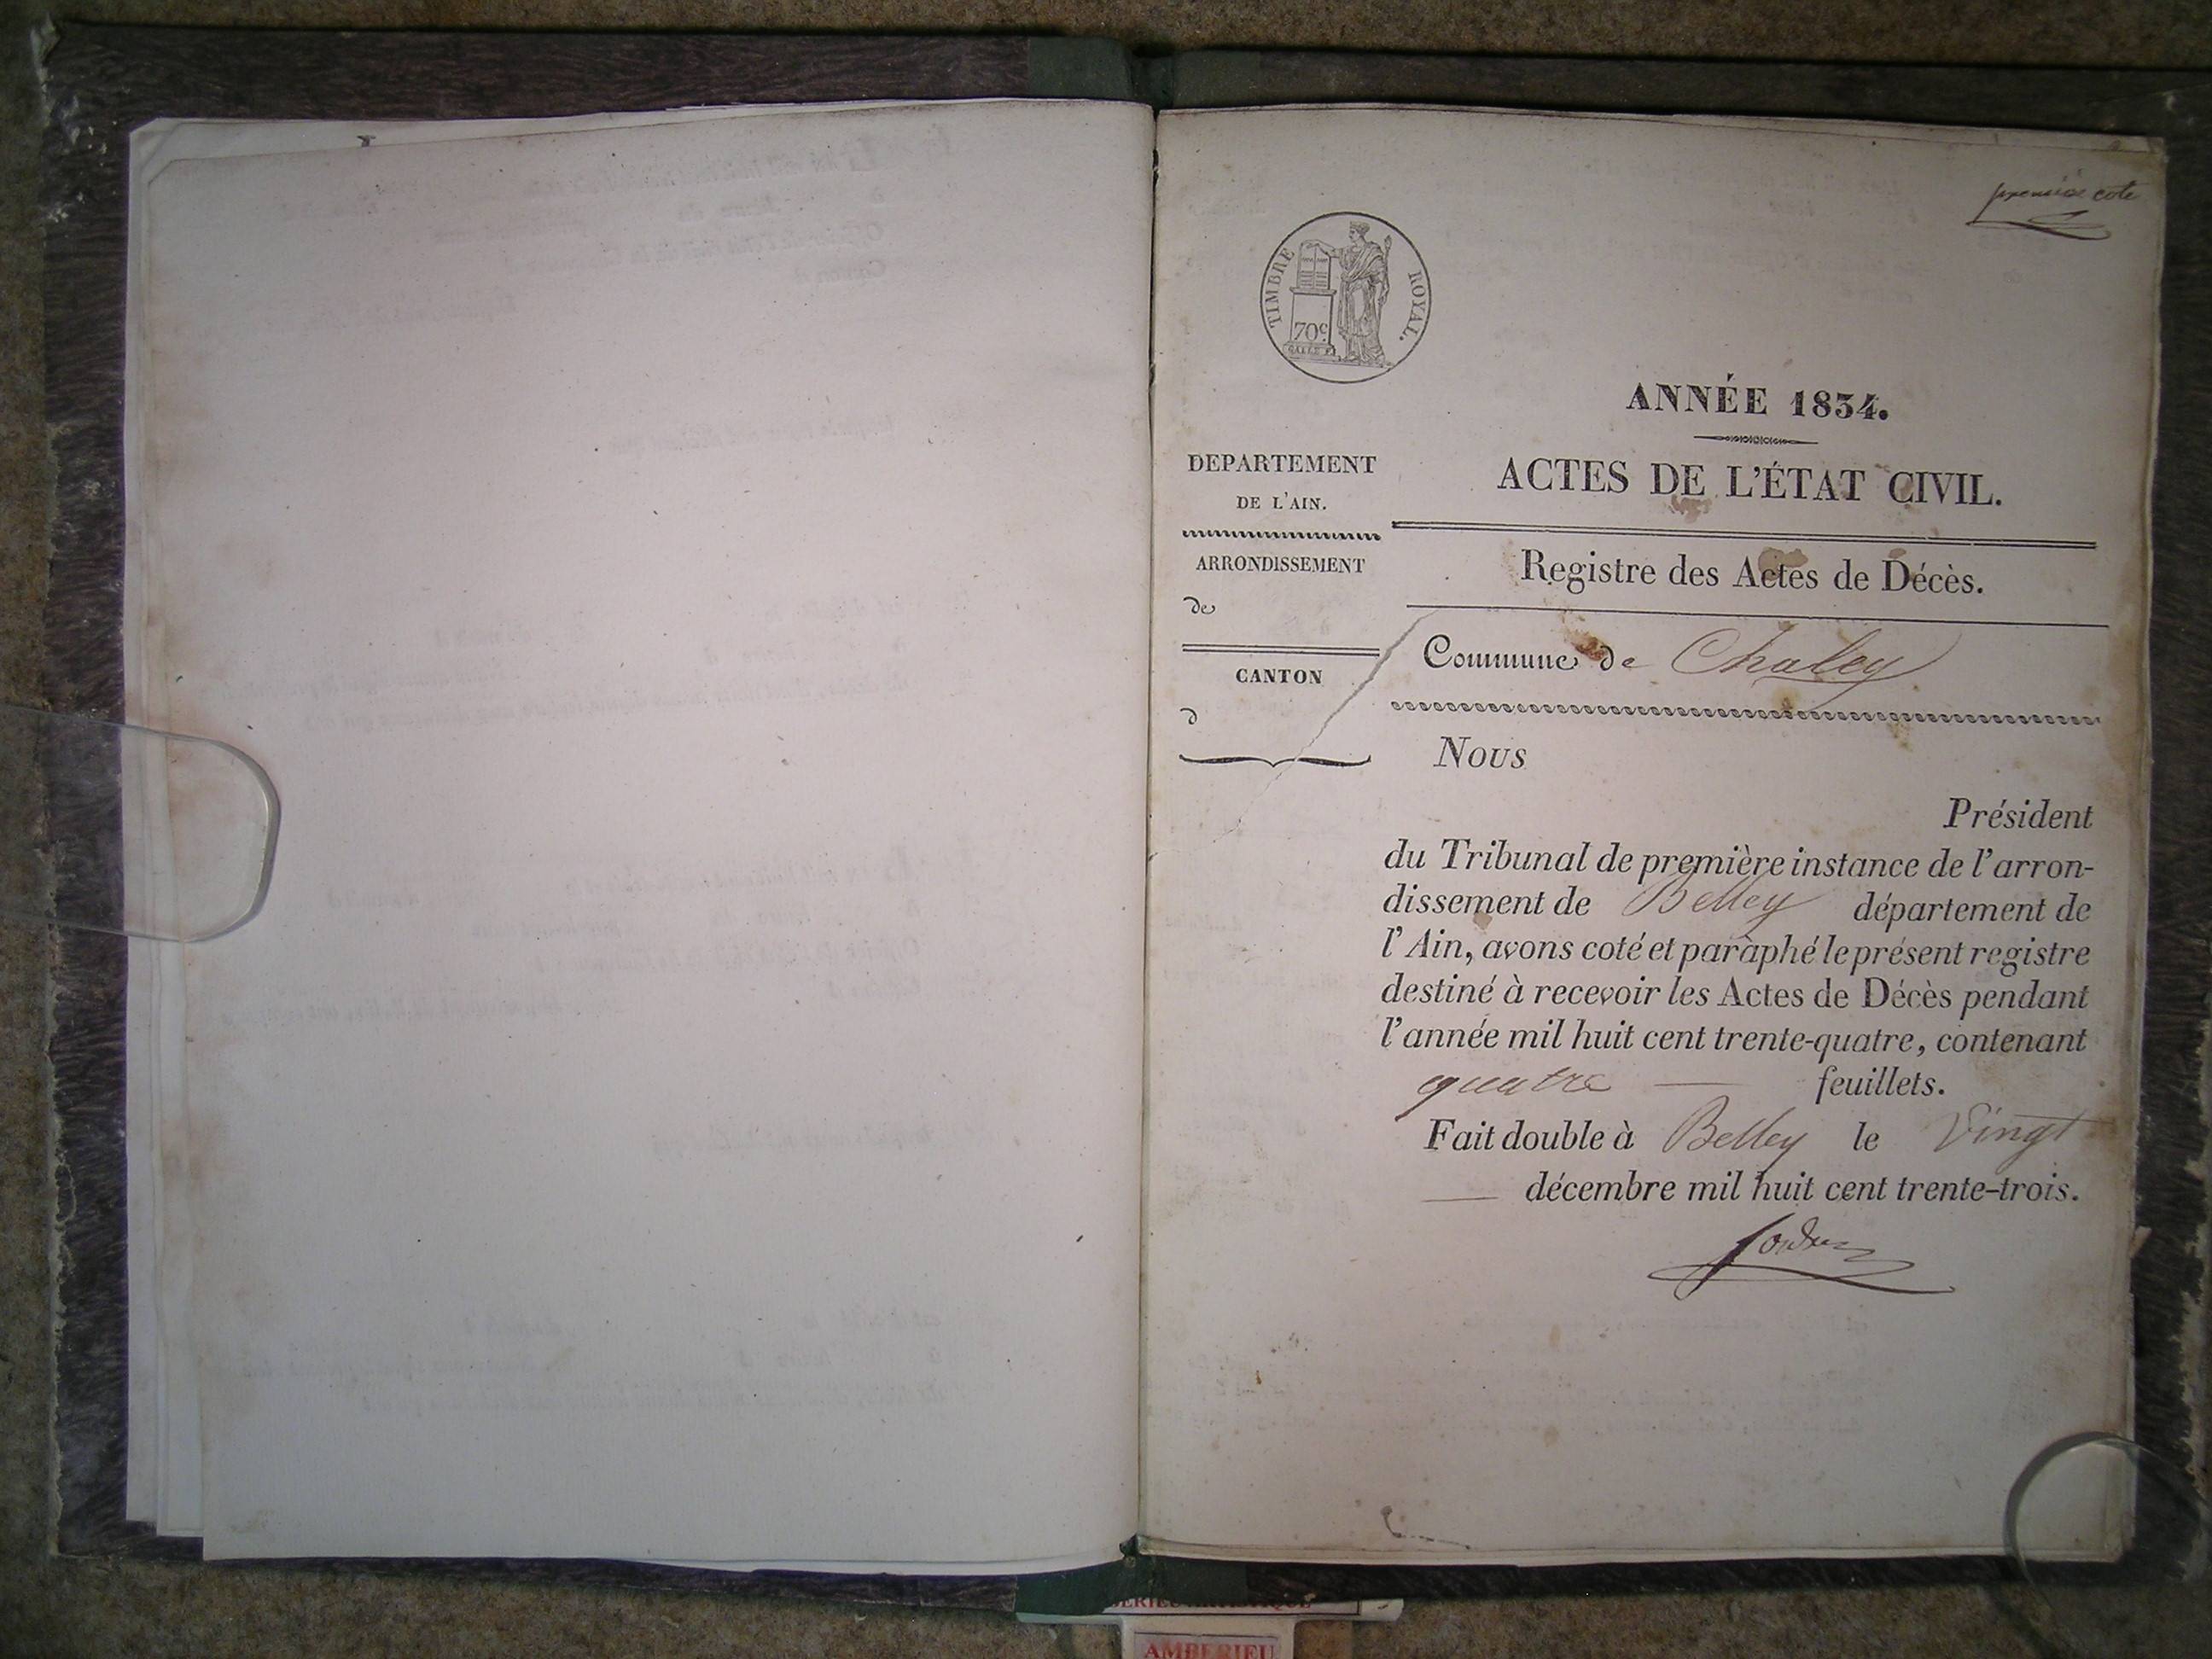 première cote
TIMBRE ROYAL.
70c
ANNÉE 1834.
DEPARTEMENT
DE L'AIN.
ACTES DE L'ÉTAT CIVIL.
ARRONDISSEMENT
de
Registre des Actes de Décès.
CANTON
d
Commune de Chaley
Nous
Président
du Tribunal de première instance de l'arron-
dissement de Belley département de
l'Ain, avons coté et paraphé le présent registre
destiné à recevoir les Actes de Décès pendant
l'année mil huit cent trente-quatre, contenant
quatre — feuillets.
Fait double à Belley le Vingt
— décembre mil huit cent trente-trois.
AMBERIEU